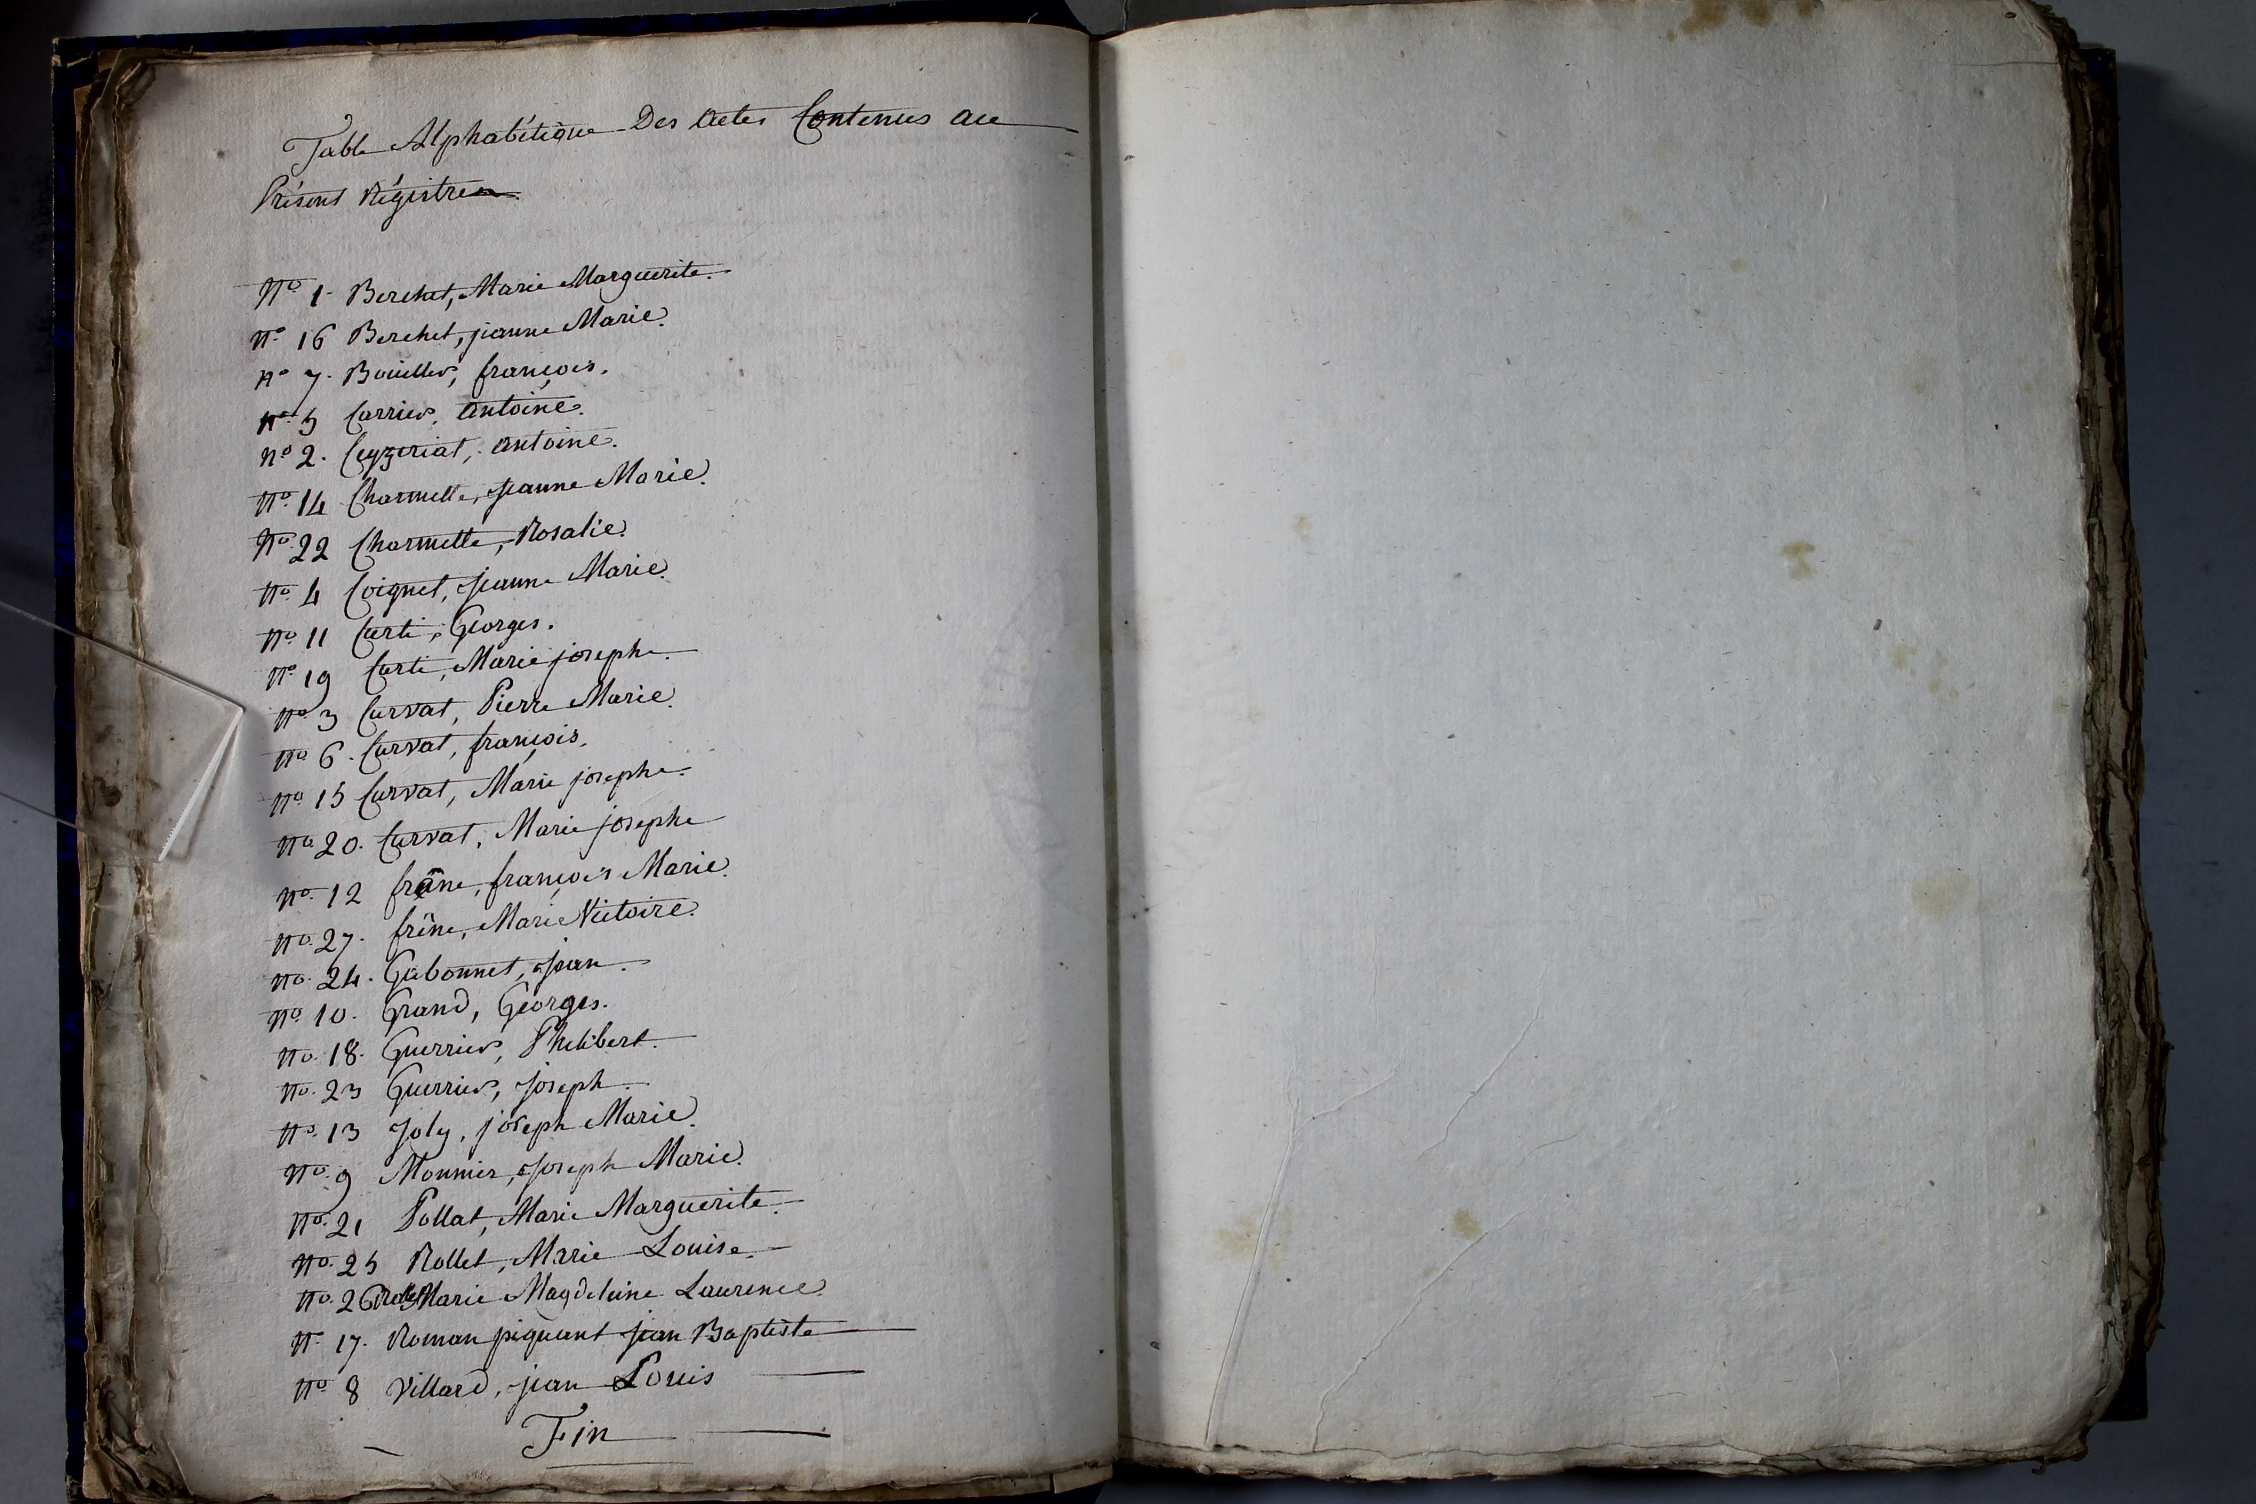 Table Alphabétique Des Actes Contenus au
Présent Régistre
N° 1 Berchet, Marie Marguerite.
N° 16 Berchet, jeanne Marie.
N° 7. Bouiller, françois.
N° 5 Carrier, antoine.
N° 2. Ceyzeriat, antoine.
N° 14 Charmette, Jeanne Marie.
N° 22 Charmette, Rosalie.
N° 4 Coignet, Jeanne Marie.
N° 11 Curti, Georges.
N° 19 Curti, Marie josephe.
N° 3 Curvat, Pierre Marie.
N° 6. Curvat, françois.
N° 15 Curvat, Marie josephe.
N° 20. Curvat, Marie josephe
N° 12 frêne, françois Marie.
N° 27. frêne, Marie Victoire.
N° 24. Gabonnet, Jean.
N° 10. Grand, Georges.
N° 18. Guerrier, Philibert.
N° 23 Guerrier, Joseph.
N° 13 Joly, joseph Marie.
N° 9 Monnier, Joseph Marie.
N° 21 Pollat, Marie Marguerite.
N° 25 Rollet, Marie Louise.
N° 26 Rollet Marie Magdeleine Laurence.
N° 17. Roman piquant jean Baptiste
N° 8 Villard, jean Louis
Fin